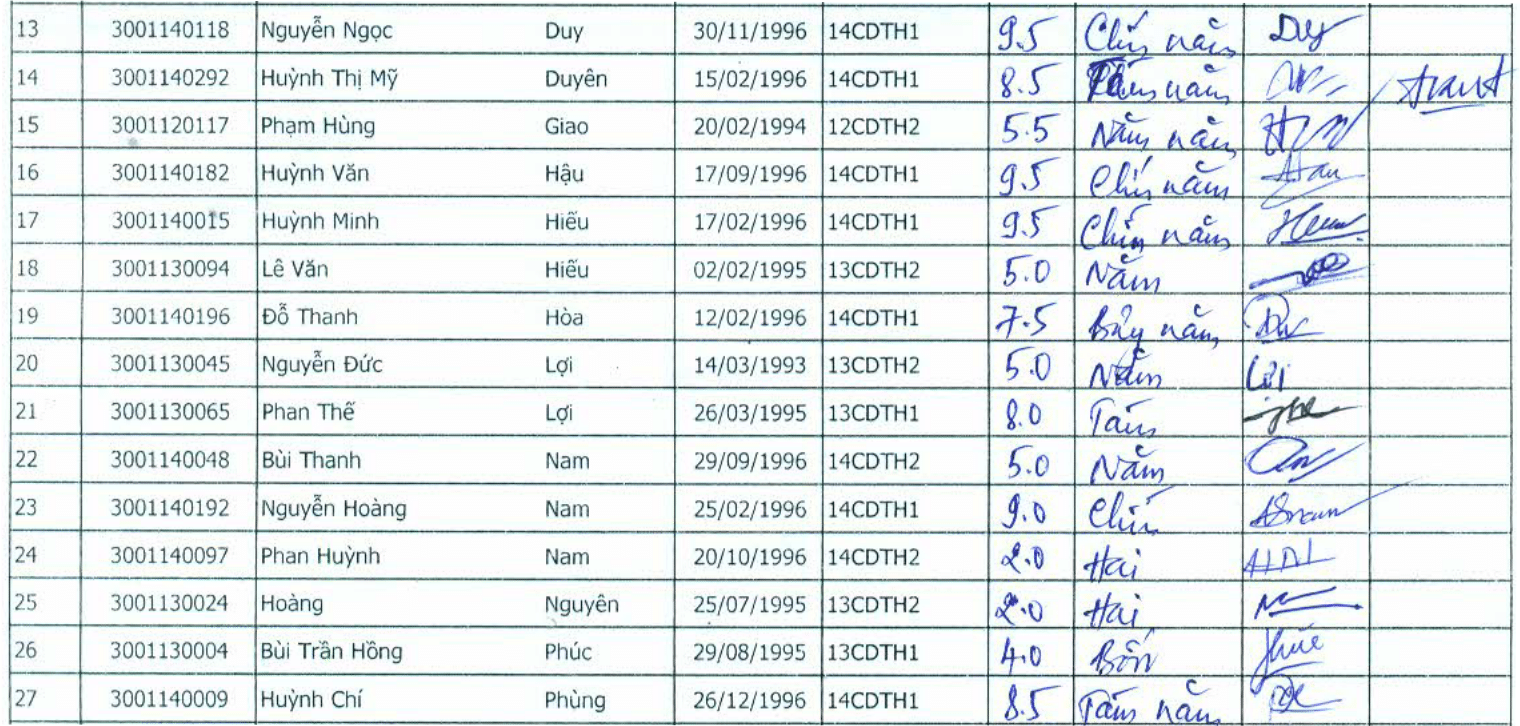 13 3001140118 Nguyễn Ngọc Duy 30/11/1996 14CDTH1 9.5 Chín năm Duy
14 3001140292 Huỳnh Thị Mỹ Duyên 15/02/1996 14CDTH1 8.5 Tám năm
15 3001120117 Phạm Hùng Giao 20/02/1994 12CDTH2 5.5 Năm năm
16 3001140182 Huỳnh Văn Hậu 17/09/1996 14CDTH1 9.5 Chín năm
17 3001140015 Huỳnh Minh Hiếu 17/02/1996 14CDTH1 9.5 Chín năm
18 3001130094 Lê Văn Hiếu 02/02/1995 13CDTH2 5.0 Năm
19 3001140196 Đỗ Thanh Hòa 12/02/1996 14CDTH1 7.5 Bảy năm
20 3001130045 Nguyễn Đức Lợi 14/03/1993 13CDTH2 5.0 Năm Lợi
21 3001130065 Phan Thế Lợi 26/03/1995 13CDTH1 8.0 Tám
22 3001140048 Bùi Thanh Nam 29/09/1996 14CDTH2 5.0 Năm
23 3001140192 Nguyễn Hoàng Nam 25/02/1996 14CDTH1 9.0 Chín
24 3001140097 Phan Huỳnh Nam 20/10/1996 14CDTH2 2.0 Hai
25 3001130024 Hoàng Nguyên 25/07/1995 13CDTH2 2.0 Hai
26 3001130004 Bùi Trần Hồng Phúc 29/08/1995 13CDTH1 4.0 Bốn Phúc
27 3001140009 Huỳnh Chí Phùng 26/12/1996 14CDTH1 8.5 Tám năm